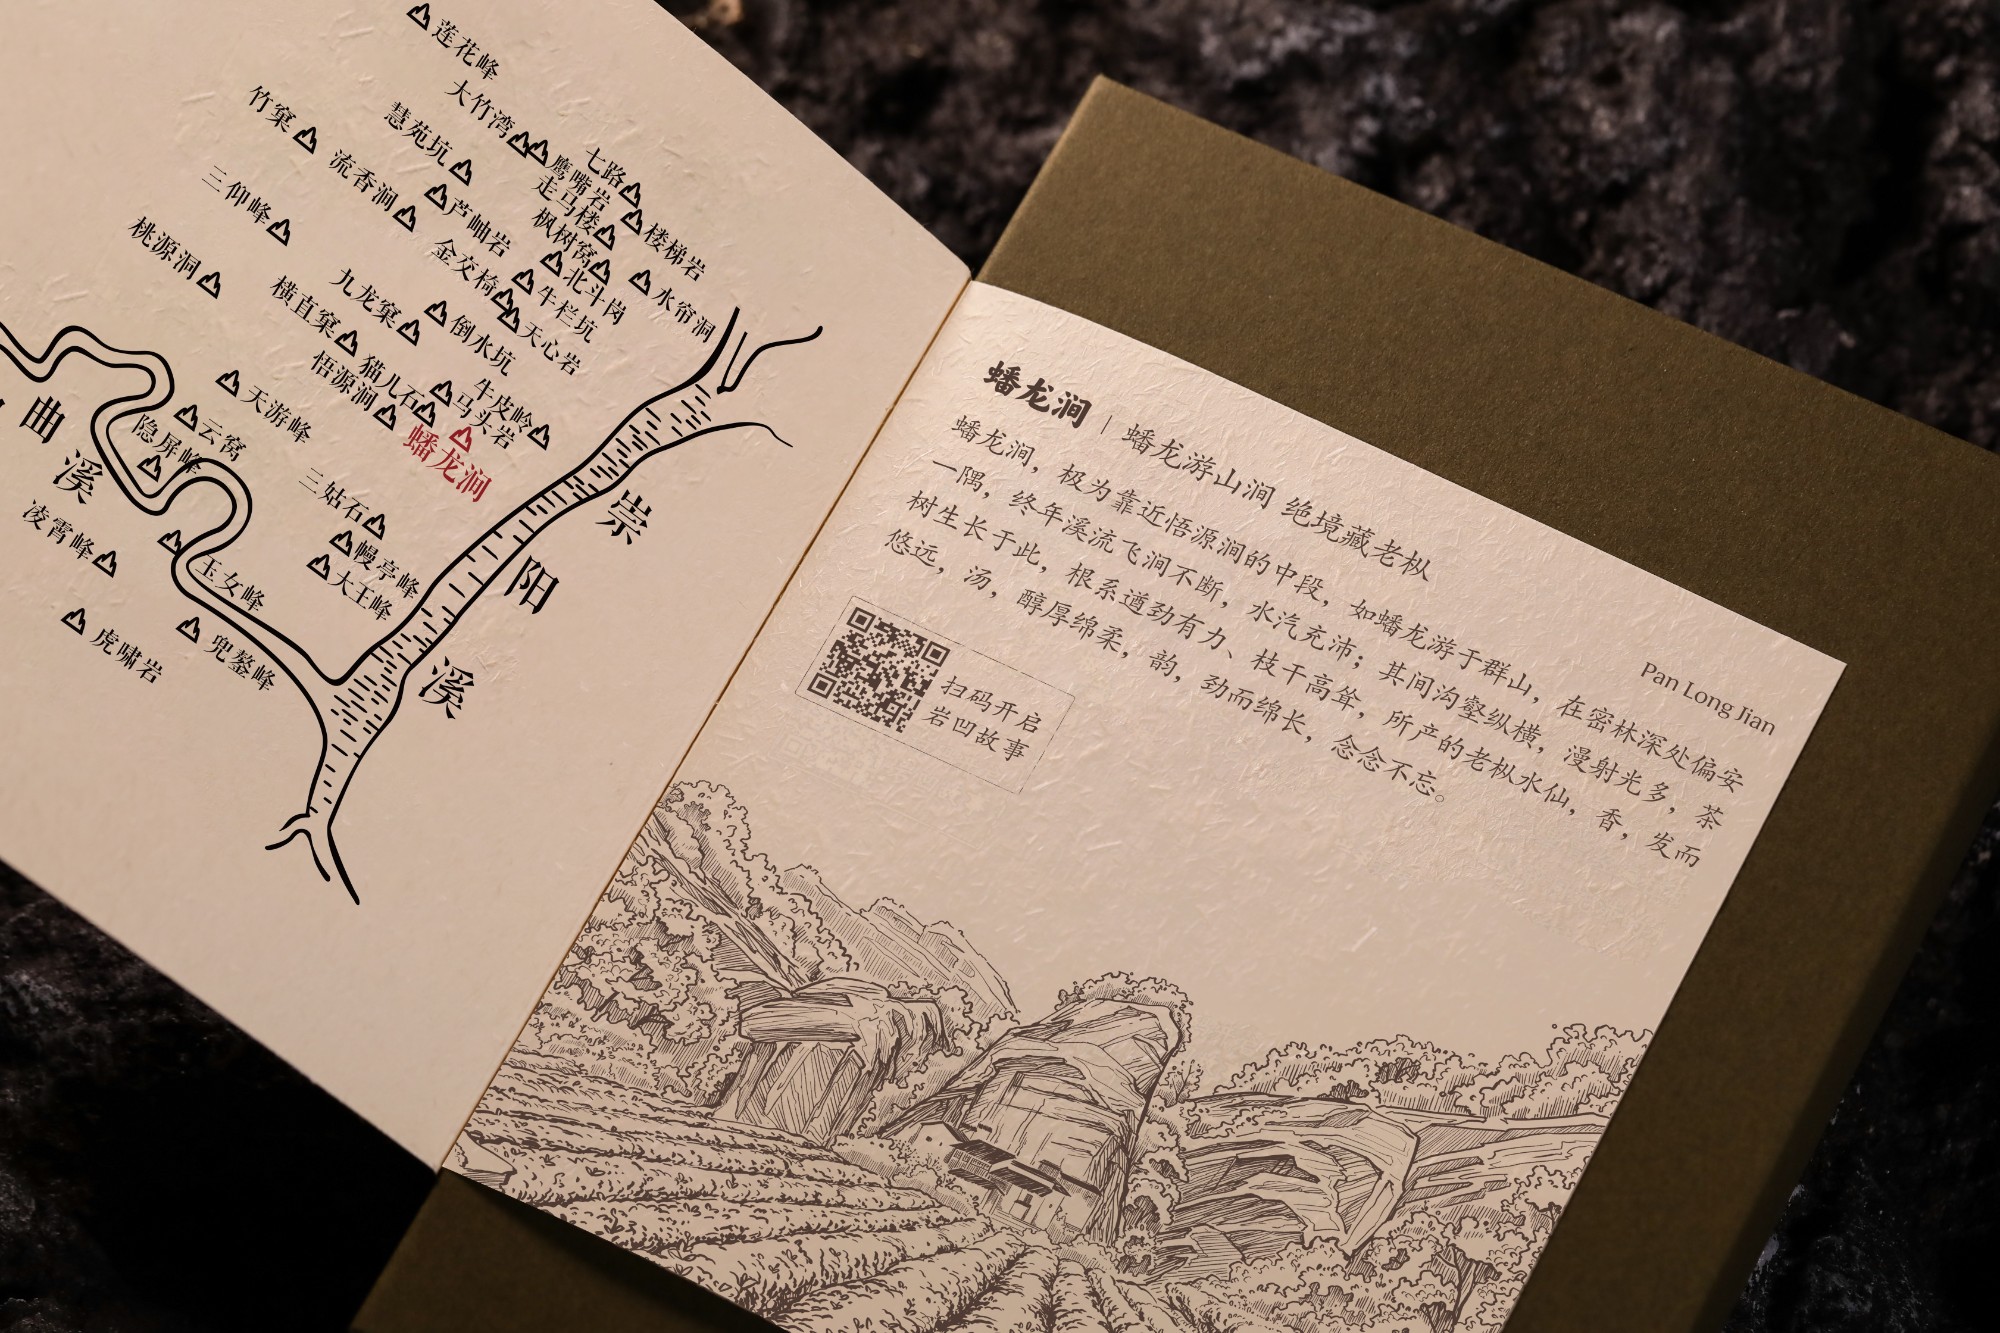 莲花峰
大竹湾
竹窠
慧苑坑
七路
鹰嘴岩
走马楼
流香涧
芦岫岩
枫树窝
楼梯岩
三仰峰
金交椅
北斗岗
水帘洞
桃源洞
九龙窠
牛栏坑
横直窠
倒水坑
天心岩
猫儿石
悟源涧
牛皮岭
马头岩
天游峰
云窝
隐屏峰
蟠龙涧
曲
溪
三姑石
凌霄峰
幔亭峰
大王峰
玉女峰
兜鍪峰
虎啸岩
崇
阳
溪
蟠龙涧 | 蟠龙游山涧 绝境藏老枞
Pan Long Jian
蟠龙涧，极为靠近悟源涧的中段，如蟠龙游于群山，在密林深处偏安
一隅，终年溪流飞涧不断，水汽充沛；其间沟壑纵横，漫射光多，茶
树生长于此，根系遒劲有力、枝干高耸，所产的老枞水仙，香，发而
悠远，汤，醇厚绵柔，韵，劲而绵长，念念不忘。
扫码开启
岩凹故事